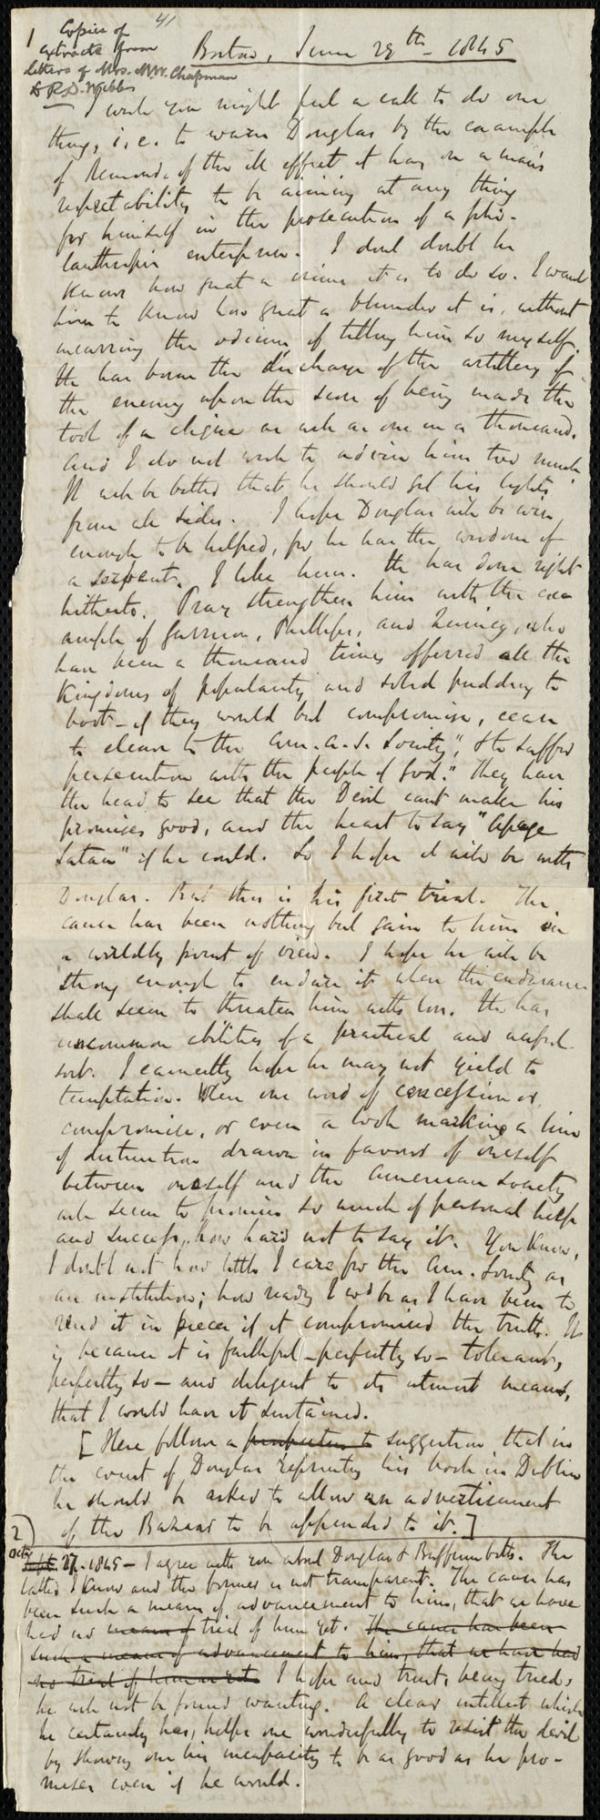 1 Copies of
extracts from
letters of Mrs. M.W. Chapman
to R.D. Webb
41
Boston, June 29th - 1845
I wish you might feel a call to do one
thing, i.e. to warn Douglas by the example
of Remond, of the ill effect it has on a man's
respectability to be aiming at any thing
for himself in the prosecution of a phi-
lanthropic enterprise. I dont doubt he
knows how great a crime it is to do so. I want
him to know how great a blunder it is, without
incurring the odium of telling him so myself.
He has borne the discharge of the artillery of
the enemy upon the score of being made the
tool of a clique as well as one in a thousand.
And I do not wish to advise him too much
It will be better that he should get his lights
from all sides. I hope Douglas will be wise
enough to be helped, for he has the wisdom of
a serpent. I like him. He has done right
hitherto. Pray strengthen him with the ex-
ample of Garrison, Phillips, and Quincy, who
have been a thousand times offered all the
Kingdoms of popularity and solid pudding to
boot - if they would but compromise, cease
to cleave to the Am. A. S. Society, "& to suffer
persecution with the people of God." They have
the head to see that the Devil cant make his
promises good, and the heart to say "Apage
Satan" if he could. So I hope it will be with
Douglas. But this is his first trial. The
cause has been nothing but gain to him in
a worldly point of view. I hope he will be
strong enough to endure it when the endurance
shall seem to threaten him with loss. He has
uncommon abilities of a practical and useful
sort. I earnestly hope he may not yield to
temptation. When one word of concession or
compromise, or even a look marking a line
of distinction drawn in favour of oneself
between oneself and the American Society
will seem to promise so much of personal help
and success, how hard not to say it. You know,
I doubt not how little I care for the Am. Society as
an institution; how ready I wd be as I have been to
rend it in pieces if it compromised the truth. It
is because it is faithful - perfectly so - tolerant,
perfectly so - and diligent to its utmost means,
that I would have it sustained.
[Here follows a suggestion that in
the event of Douglas reprinting his book in Dublin
he should be asked to allow an advertisement
of the Bazaar to be appended to it.]
2
Octr 27. 1845 - I agree with you about Douglas & Buffum both. The
latter I know and the former is not transparent. The cause has
been such a means of advancement to him, that we have
had no means of trial of him yet. The cause has been
such a means of advancement to him, that we have had
no trial of him yet. I hope and trust, being tried,
he will not be found wanting. A clear intellect which
he certainly has, helps one wonderfully to resist the devil
by shewing one his incapacity to be as good as he pro-
mises even if he would.